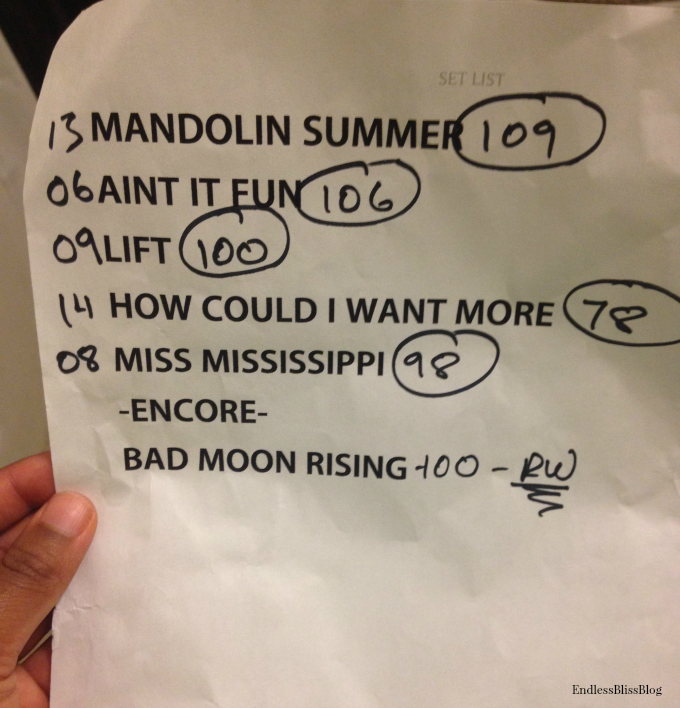 SET LIST
13 MANDOLIN SUMMER 109
06 AINT IT FUN 106
09 LIFT 100
14 HOW COULD I WANT MORE 78
08 MISS MISSISSIPPI 98
-ENCORE-
BAD MOON RISING -100 - RW
EndlessBlissBlog